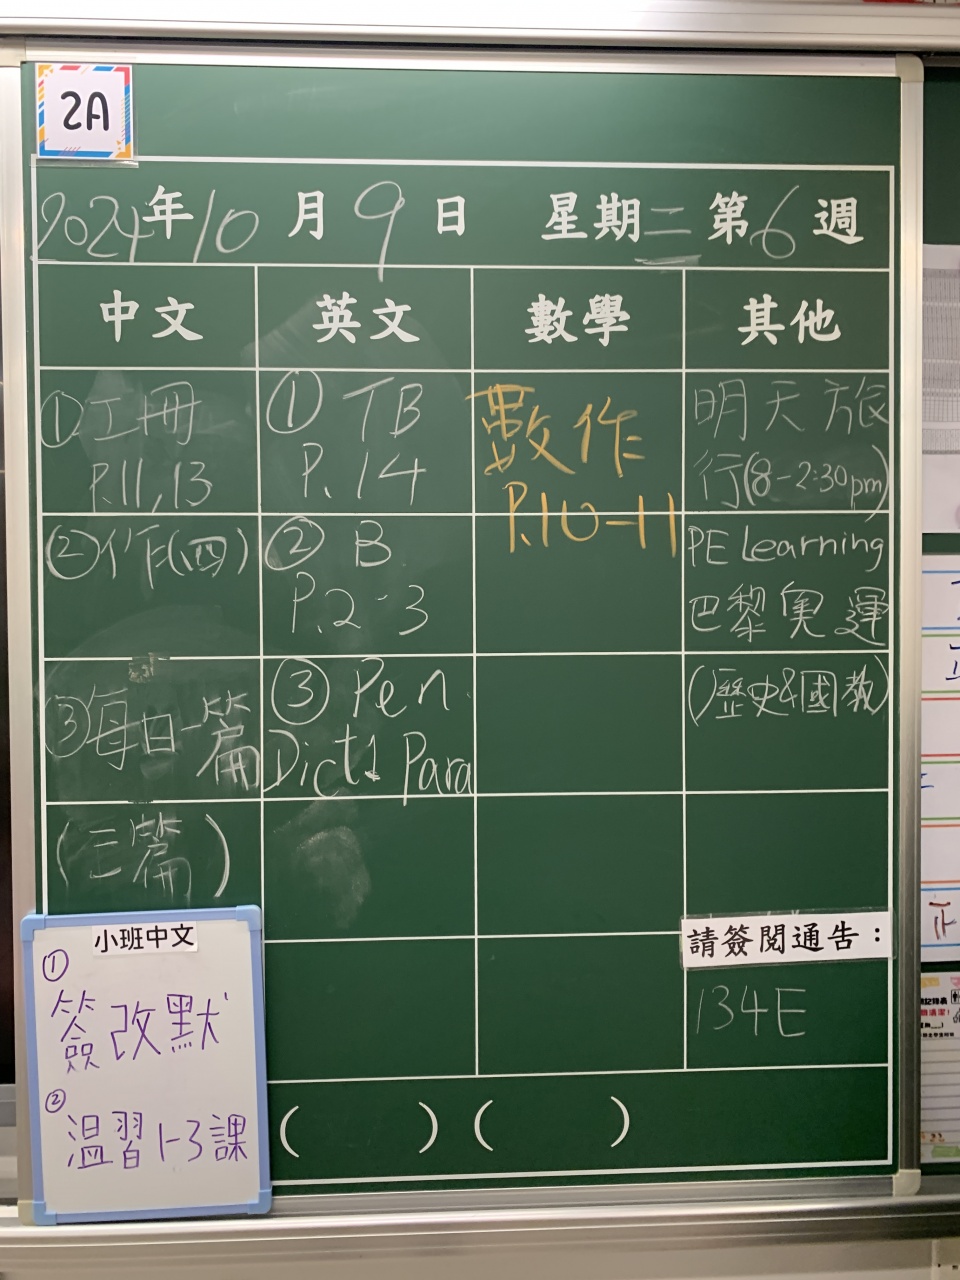 2A
2024年10月9日 星期二 第6週
中文
英文
數學
其他
①工冊
P.11,13
②作(四)
③每日一篇
(三篇)
① TB
P.14
② B
P.2-3
③ Pen
Dict1 Para
數作
P.10-11
明天旅
行(8-2:30pm)
PE Learning
巴黎奧運
(歷史&國教)
請簽閱通告：
134E
小班中文
①
簽改默
②
溫習1-3課
(　　) (　　)